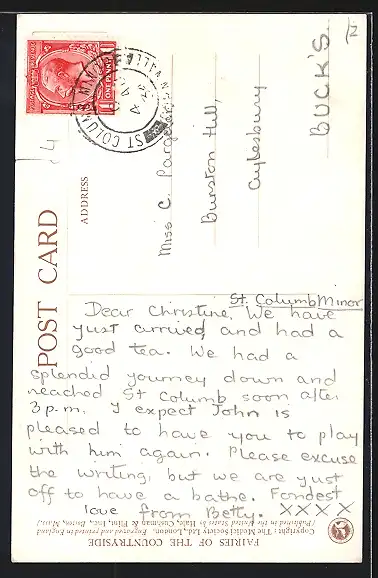 POST CARD
ADDRESS
ONE PENNY
ST COLUMB MINOR
Miss C. Pargeter
Burston Hill,
Aylesbury
BUCK'S.
12
4
St. Columb Minor
Dear Christine, We have
just arrived, and had a
good tea. We had a
splendid journey down and
reached St Columb soon after
3 p.m. I expect John is
pleased to have you to play
with him again. Please excuse
the writing, but we are just
off to have a bathe. Fondest
love from Betty. XXXX
FAIRIES OF THE COUNTRYSIDE
Copyright: The Medici Society Ltd., London. Engraved and printed in England
(Published in the United States by Hale, Cushman & Flint, Inc., Boston, Mass.)